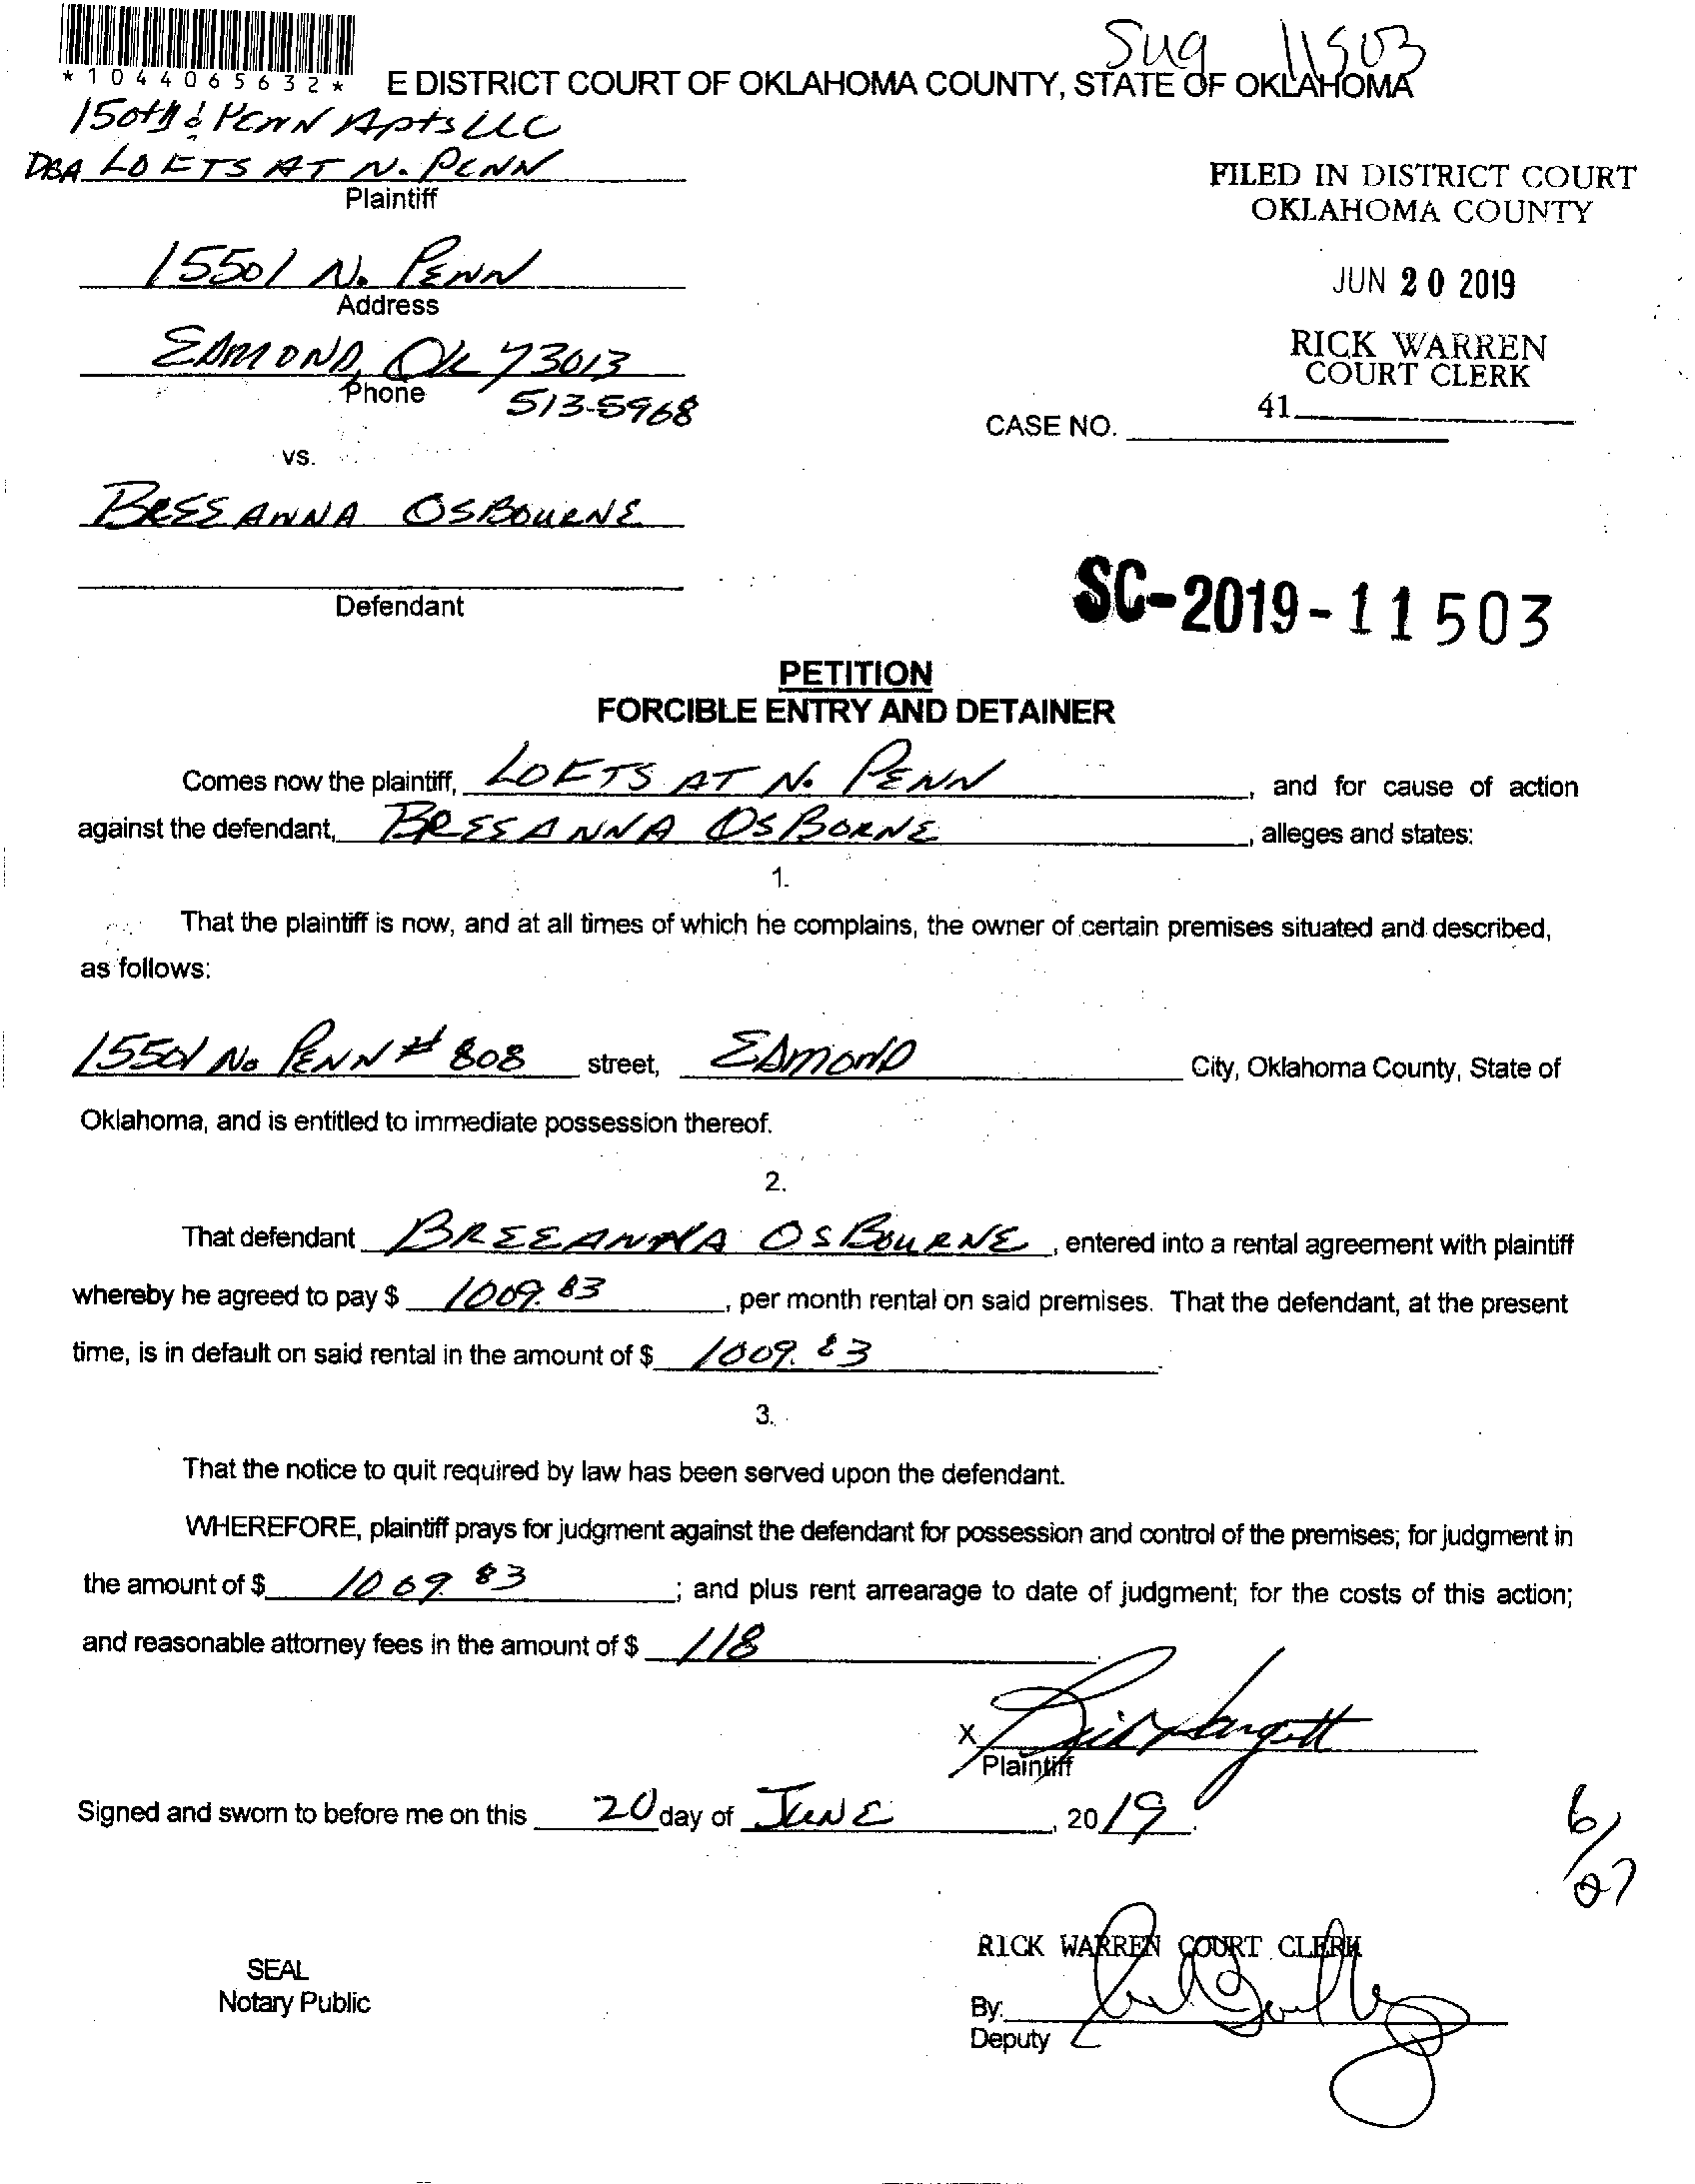 Sug 11503
*1044065632*
E DISTRICT COURT OF OKLAHOMA COUNTY, STATE OF OKLAHOMA
150th & PENN Apts LLC
DBA LOFTS AT N. PENN
Plaintiff
FILED IN DISTRICT COURT
OKLAHOMA COUNTY
15501 N. PENN
Address
JUN 20 2019
EDMOND, OK 73013
Phone 513-5968
RICK WARREN
COURT CLERK
41
CASE NO.
vs.
BREEANNA OSBOURNE
Defendant
SC-2019-11503
PETITION
FORCIBLE ENTRY AND DETAINER
Comes now the plaintiff, LOFTS AT N. PENN, and for cause of action
against the defendant, BREEANNA OSBORNE, alleges and states:
1.
That the plaintiff is now, and at all times of which he complains, the owner of certain premises situated and described,
as follows:
15501 No PENN # 808 street, EDMOND City, Oklahoma County, State of
Oklahoma, and is entitled to immediate possession thereof.
2.
That defendant BREEANNA OSBOURNE, entered into a rental agreement with plaintiff
whereby he agreed to pay $ 1009.83, per month rental on said premises. That the defendant, at the present
time, is in default on said rental in the amount of $ 1009.83.
3.
That the notice to quit required by law has been served upon the defendant.
WHEREFORE, plaintiff prays for judgment against the defendant for possession and control of the premises; for judgment in
the amount of $ 1069.83; and plus rent arrearage to date of judgment; for the costs of this action;
and reasonable attorney fees in the amount of $ 118
X
Plaintiff
Signed and sworn to before me on this 20 day of JUNE, 2019.
6/27
RICK WARREN COURT CLERK
SEAL
Notary Public
By:
Deputy